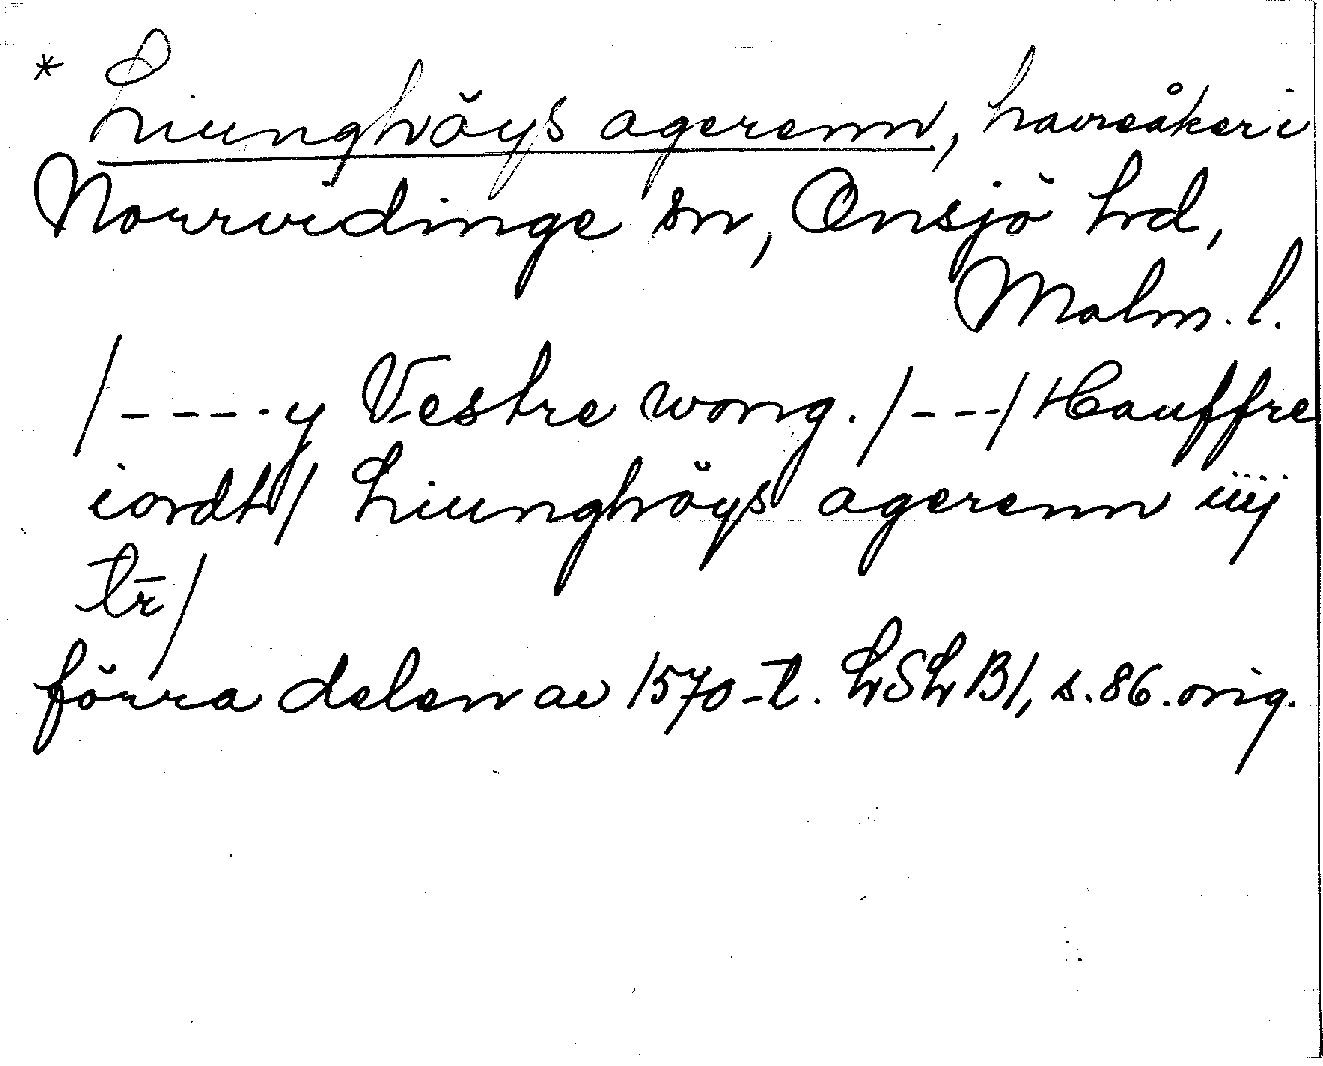 * Liunghöys agerenn, havreåker i
Norrvidinge sn, Onsjö hd,
Malm. l.
/----y Vestre wong./---/Hauffre
iordt/ Liunghöys agerenn iiij
tr̄/
förra delen av 1570-t. LSLB1, s. 86. orig.